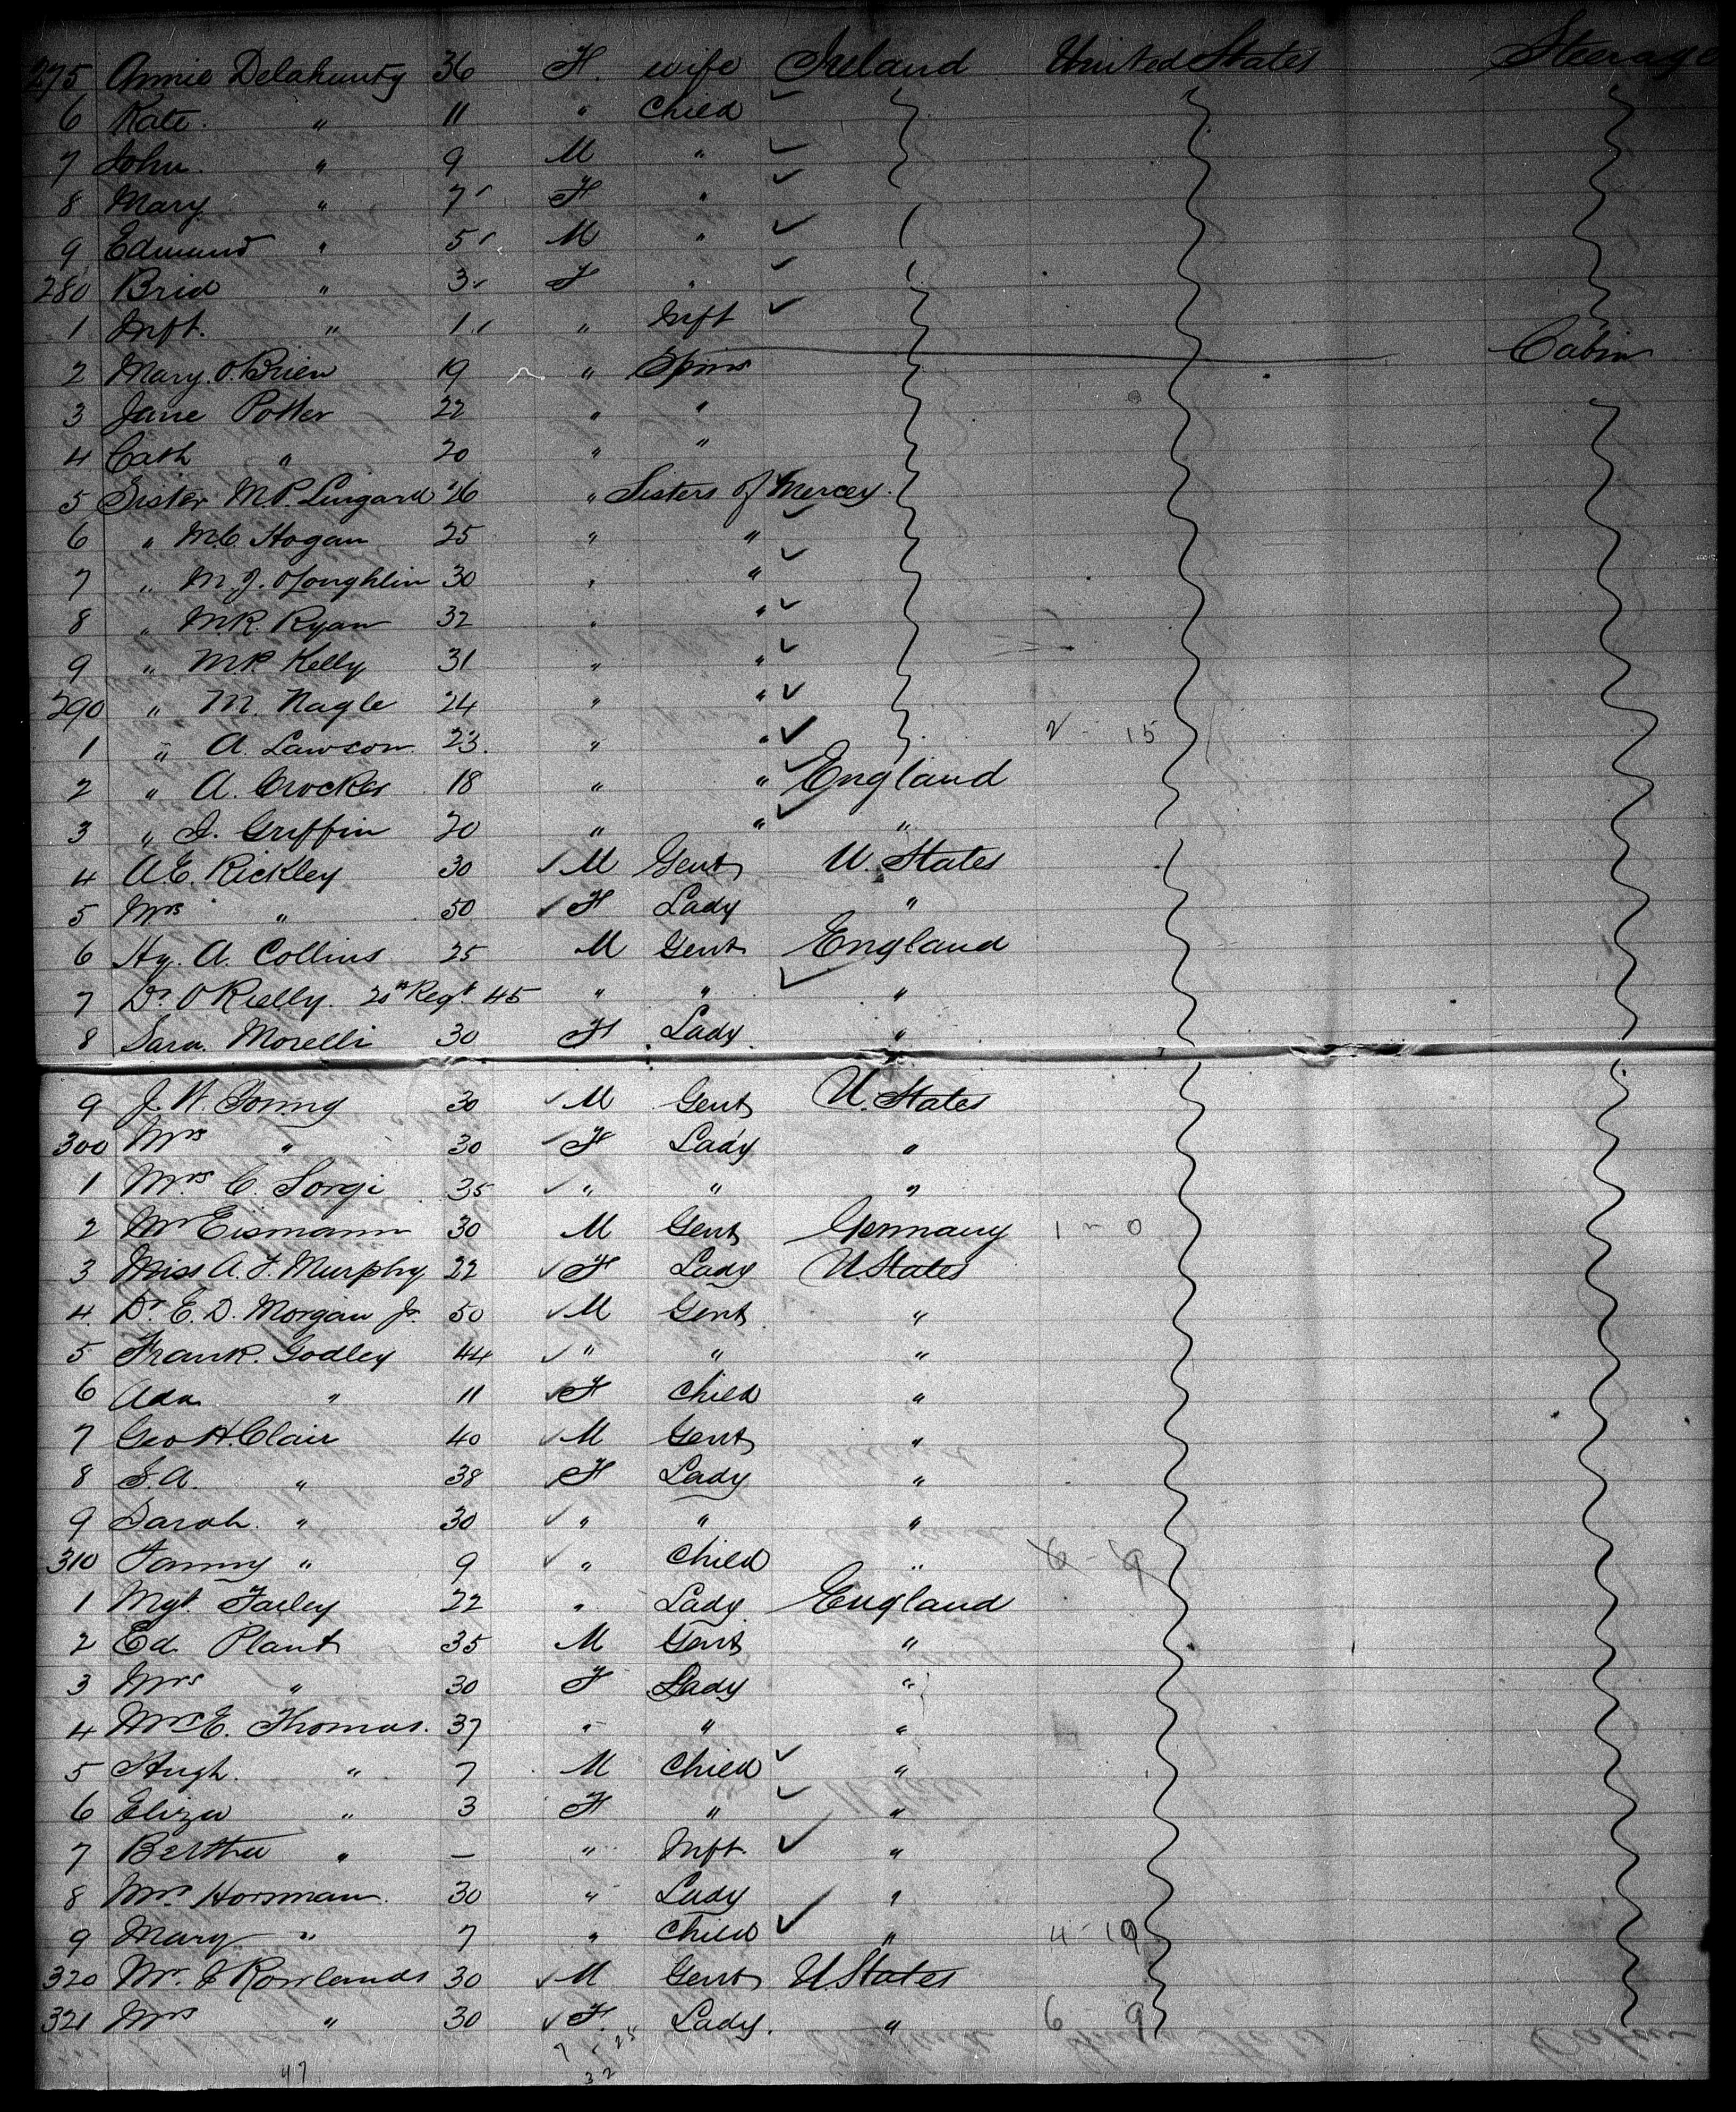 275 Annie Delahunty 36 F. wife Ireland United States Steerage
6 Kate. " 11 " Child
7 John. " 9 M "
8 Mary " 7 F "
9 Edmund " 5 M "
280 Brid " 3 F "
1 Inft. " 1 " Inft
2 Mary O'Brien 19 " Spins Cabin
3 Jane Potter 22 " "
4 Cath " 20 " "
5 Sister M.P. Lingard 26 " Sisters of Mercey.
6 " M.C. Hogan 25 " "
7 " M.J. O'Loughlin 30 " "
8 " M.R. Ryan 32 " "
9 " M.P. Kelly 31 " "
290 " M. Nagle 24 " "
1 " A. Lawson 23. " " 2 - 15
2 " A. Crocker 18 " " England
3 " J. Griffin 20 " " "
4 A.E. Rickley 30 M Gent U. States
5 Mrs " 50 F Lady "
6 Hy. A. Collins 25 M Gent England
7 Dr. O'Rielly. 20th Regt 45 " " "
8 Sara Morelli 30 F Lady "
9 J.W. 30 M Gent U. States
300 Mrs " 30 F Lady "
1 Mrs C. Sorgi 35 " " "
2 Mr Eismann 30 M Gent Germany 1 - 0
3 Miss A.F. Murphy 22 F Lady U. States
4 Dr. E.D. Morgan Jr. 50 M Gent "
5 Frank. Godley 44 " " "
6 Ada " 11 F Child "
7 Geo H. Clair 40 M Gent "
8 S.A. " 38 F Lady "
9 Sarah. " 30 " " "
310 Fanny " 9 " Child " 6 - 9
1 Mgt. Farley 22 " Lady England
2 Ed. Plant 35 M Gent "
3 Mrs " 30 F Lady "
4 Mrs E. Thomas. 37 " " "
5 Hugh. " 7 M Child "
6 Eliza " 3 F " "
7 Bertha " — " Inft "
8 Mrs Horsman. 30 " Lady "
9 Mary " 7 " Child " 4 - 19
320 Mr. J Rowlands 30 M Gent U. States
321 Mrs " 30 F. Lady. " 6 9
47 32